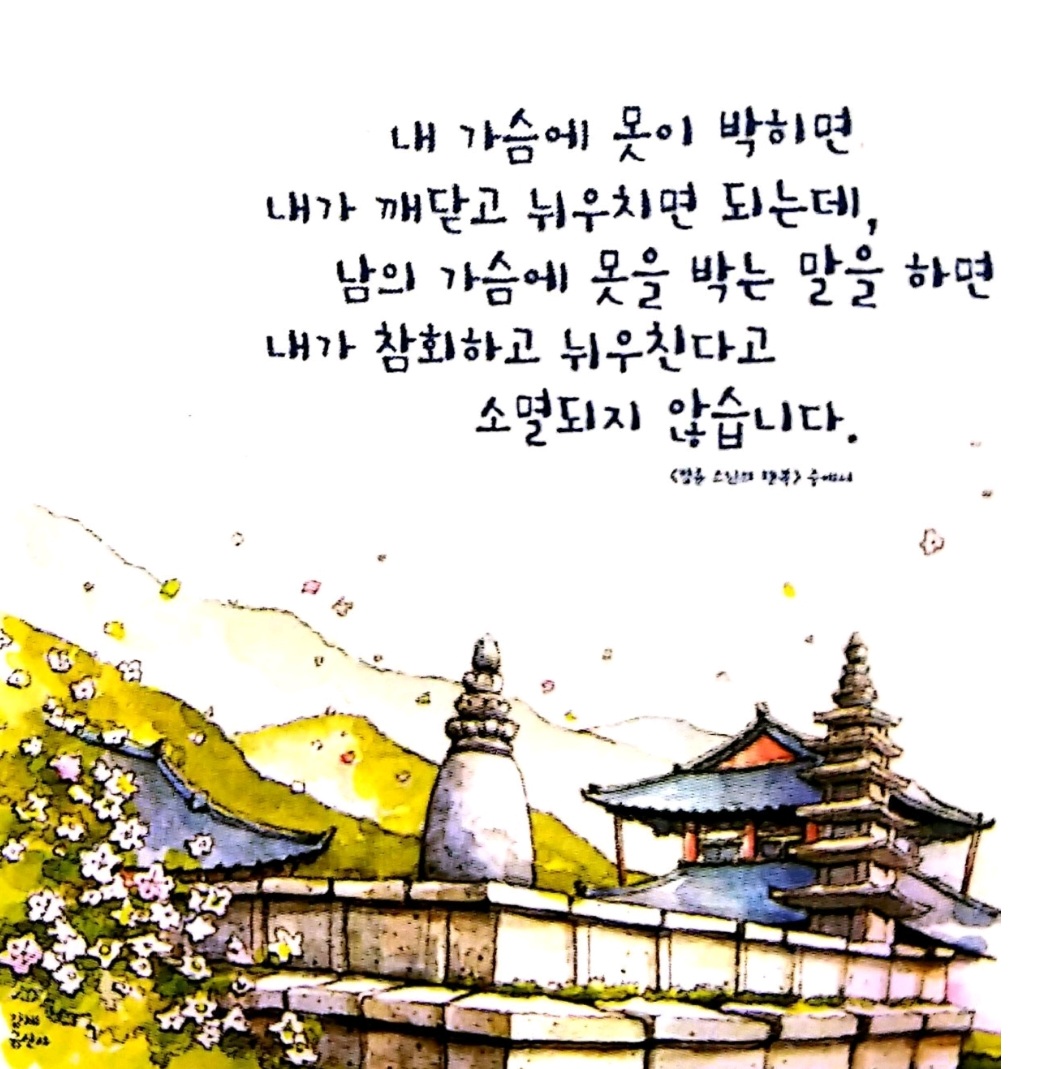 내 가슴에 못이 박히면
내가 깨닫고 뉘우치면 되는데,
남의 가슴에 못을 박는 말을 하면
내가 참회하고 뉘우친다고
소멸되지 않습니다.
<법륜 스님의 행복> 중에서
김제
금산사